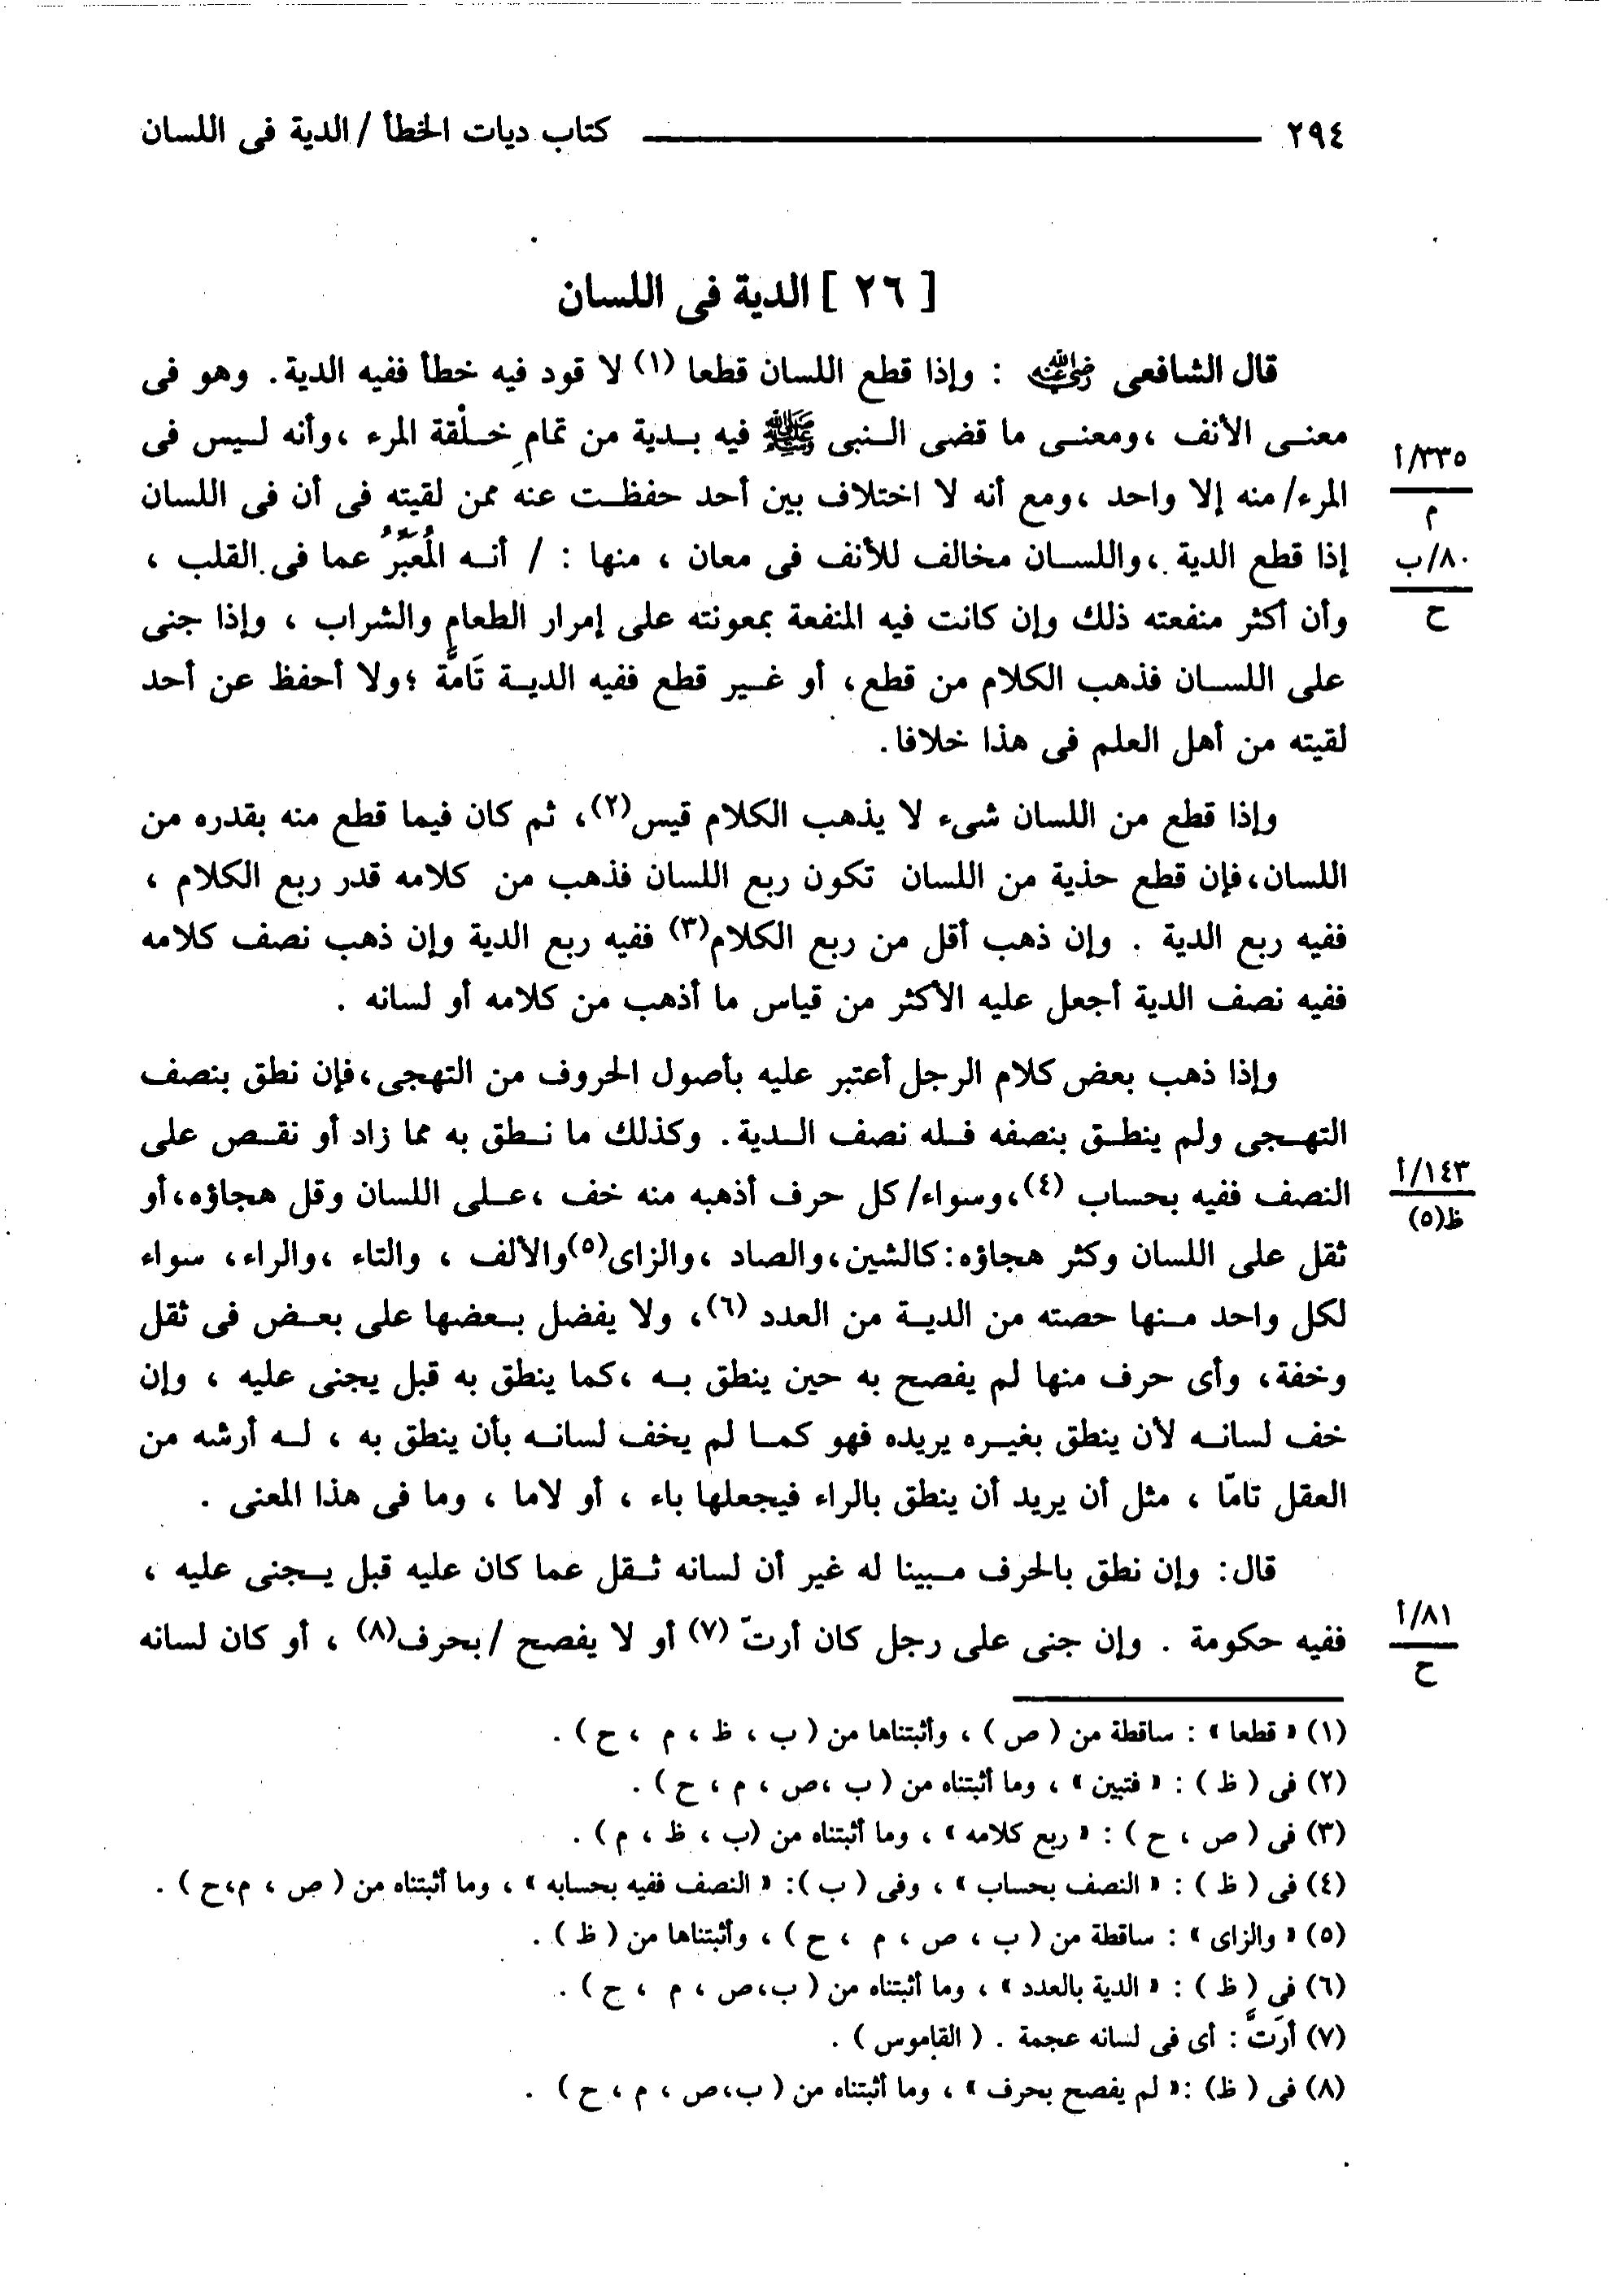 ٢٩٤ كتاب ديات الخطأ / الدية فى اللسان
[ ٢٦ ] الدية فى اللسان
قال الشافعى رضي الله عنه : وإذا قطع اللسان قطعا (١) لا قود فيه خطأ ففيه الدية. وهو فى
معنى الأنف ،ومعنى ما قضى النبى ﷺ فيه بدية من تمام خلْقة المرء ،وأنه ليس فى
المرء/ منه إلا واحد ،ومع أنه لا اختلاف بين أحد حفظت عنه ممن لقيته فى أن فى اللسان
إذا قطع الدية ،واللسان مخالف للأنف فى معان ، منها : / أنه المُعَبِّرُ عما فى القلب ،
وأن أكثر منفعته ذلك وإن كانت فيه المنفعة بمعونته على إمرار الطعام والشراب ، وإذا جنى
على اللسان فذهب الكلام من قطع، أو غير قطع ففيه الدية تَامَّة ؛ولا أحفظ عن أحد
لقيته من أهل العلم فى هذا خلافا.
وإذا قطع من اللسان شىء لا يذهب الكلام قيس(٢)، ثم كان فيما قطع منه بقدره من
اللسان،فإن قطع حذية من اللسان تكون ربع اللسان فذهب من كلامه قدر ربع الكلام ،
ففيه ربع الدية . وإن ذهب أقل من ربع الكلام(٣) ففيه ربع الدية وإن ذهب نصف كلامه
ففيه نصف الدية أجعل عليه الأكثر من قياس ما أذهب من كلامه أو لسانه .
وإذا ذهب بعض كلام الرجل أعتبر عليه بأصول الحروف من التهجى،فإن نطق بنصف
التهجى ولم ينطق بنصفه فله نصف الدية. وكذلك ما نطق به مما زاد أو نقص على
النصف ففيه بحساب (٤)،وسواء/ كل حرف أذهبه منه خف ،على اللسان وقل هجاؤه،أو
ثقل على اللسان وكثر هجاؤه:كالشين،والصاد ،والزاى(٥)والألف ، والتاء ،والراء، سواء
لكل واحد منها حصته من الدية من العدد (٦)، ولا يفضل بعضها على بعض فى ثقل
وخفة، وأى حرف منها لم يفصح به حين ينطق به ،كما ينطق به قبل يجنى عليه ، وإن
خف لسانه لأن ينطق بغيره يريده فهو كما لم يخف لسانه بأن ينطق به ، له أرشه من
العقل تامّا ، مثل أن يريد أن ينطق بالراء فيجعلها باء ، أو لاما ، وما فى هذا المعنى .
قال: وإن نطق بالحرف مبينا له غير أن لسانه ثقل عما كان عليه قبل يجنى عليه ،
ففيه حكومة . وإن جنى على رجل كان أرتّ (٧) أو لا يفصح /بحرف(٨) ، أو كان لسانه
٣٣٥/أ
م
٨٠/ب
ح
١٤٣/أ
ظ(٥)
٨١/أ
ح
(١) « قطعا » : ساقطة من ( ص ) ، وأثبتناها من ( ب ، ظ ، م ، ح ) .
(٢) فى ( ظ ) : « فتبين » ، وما أثبتناه من ( ب ،ص ، م ، ح ) .
(٣) فى ( ص ، ح ) : « ربع كلامه » ، وما أثبتناه من (ب ، ظ ، م) .
(٤) فى ( ظ ) : « النصف بحساب » ، وفى ( ب ): « النصف ففيه بحسابه » ، وما أثبتناه من ( ص ، م،ح ) .
(٥) « والزاى » : ساقطة من ( ب ، ص ، م ، ح ) ، وأثبتناها من ( ظ ) .
(٦) فى ( ظ ) : « الدية بالعدد » ، وما أثبتناه من ( ب،ص ، م ، ح ) .
(٧) أَرَتَّ : أى فى لسانه عجمة . ( القاموس ) .
(٨) فى ( ظ) :« لم يفصح بحرف » ، وما أثبتناه من ( ب،ص ، م ، ح ) .